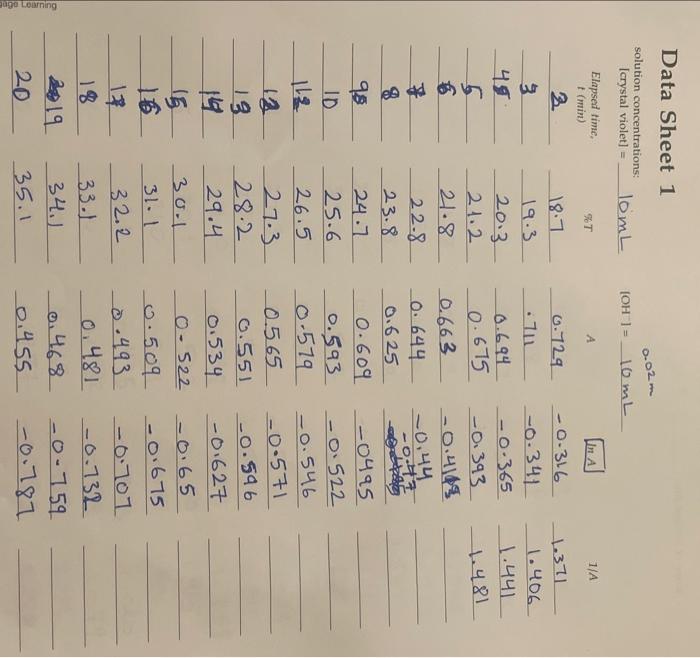 gage Learning
Data Sheet 1
solution concentrations:
[crystal violet] = 10 mL [OH⁻] = 10 mL 0.02 m
Elapsed time, t (min) %T A ln A 1/A
2 18.7 0.729 -0.316 1.371
3 19.3 .711 -0.341 1.406
4 20.3 0.694 -0.365 1.441
5 21.2 0.675 -0.393 1.481
6 21.8 0.663
7 22.8 0.644 -0.44
8 23.8 0.625 -0.47
9 24.7 0.609 -0495
10 25.6 0.593 -0.522
11 26.5 0.579 -0.546
12 27.3 0.565 -0.571
13 28.2 0.551 -0.596
14 29.4 0.534 -0.627
15 30.1 0.522 -0.65
16 31.1 0.509 -0.675
17 32.2 0.493 -0.707
18 33.1 0.481 -0.732
19 34.1 0.468 -0.759
20 35.1 0.455 -0.787